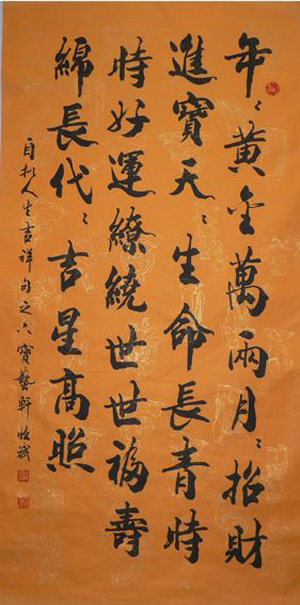 年〻黃金萬兩月〻招財
進寶天〻生命長青時
時好運繚繞世世福壽
綿長代〻吉星高照
自拟人生吉祥句之六 寶藝軒